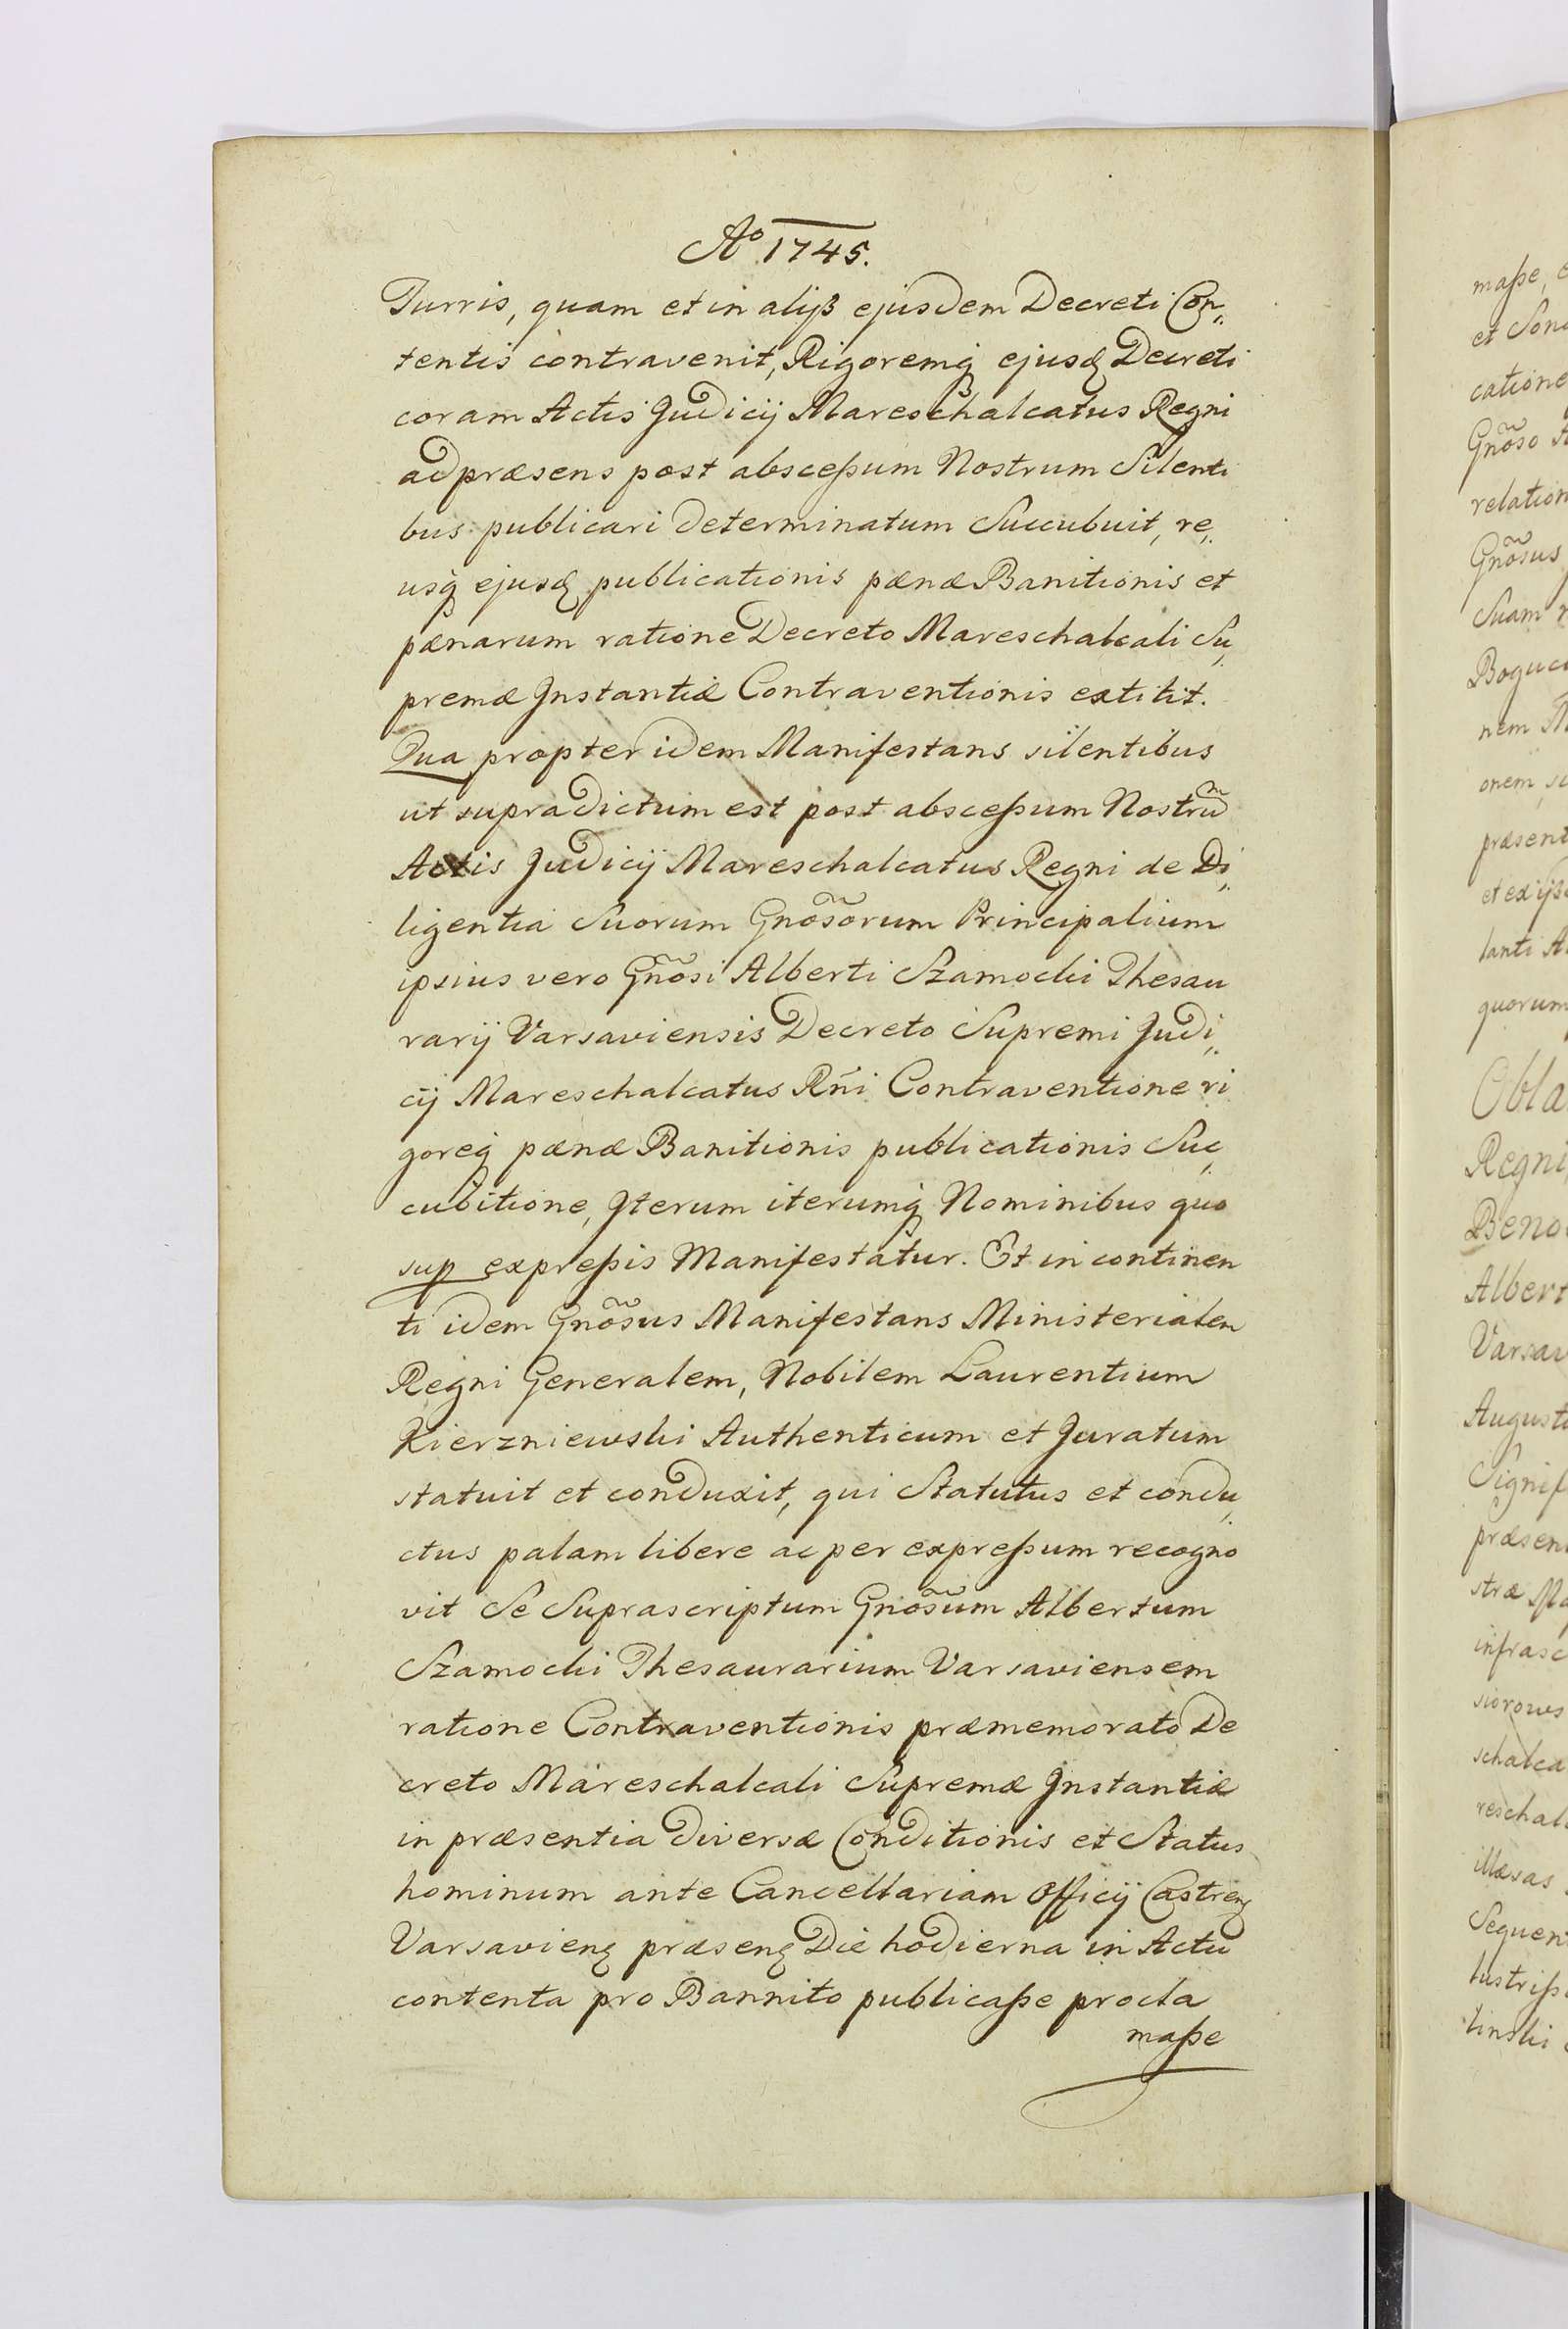 Aº 1745.
Turris, quam et in alijß ejusdem Decreti Con„
tentis contravenit, Rigoremq̃ ejusdꝫ Decreti
coram Actis Judicij Mareschalcatus Regni
ad præsens post absceßum Nostrum Silenti
bus publicari determinatum Succubuit, re„
usq̃ ejusdꝫ publicationis pænæ Banitionis et
pænarum ratione Decreto Mareschalcali Su„
premæ Instantiæ Contraventionis extitit.
Qua propter idem Manifestans silentibus
ut supradictum est post absceßum Nostrũ
Actis Judicij Mareschalcatus Regni de Di„
ligentia Suorum Gnõsorum Principalium
ipsius vero Gnõsi Alberti Szamocki Thesau
rarij Varsaviensis Decreto Supremi Judi„
cij Mareschalcatus Rñi Contraventione ri
goreq̃ pænæ Banitionis publicationis Suc„
cubitione, Iterum iterumq̃ Nominibus quo
sup expreßis Manifestatur. Et in continen
ti idem Gnõsus Manifestans Ministerialem
Regni Generalem, Nobilem Laurentium
Kierzniewski Authenticum et Juratum
statuit et conduxit, qui Statutus et condu„
ctus palam libere ac per expreßum recogno
vit Se Suprascriptum Gnõsum Albertum
Szamocki Thesaurarium Varsaviensem
ratione Contraventionis præmemorato De
creto Mareschalcali Supremæ Instantiæ
in præsentia diversæ Conditionis et Status
hominum ante Cancellariam Officij Castrenꝫ
Varsavienꝫ præsenꝫ Die hodierna in Actu
contenta pro Bannito publicaße procla
maße
maße,
et
catione
Gnõso
relation
Gnõsus
Suam
nem
onem
præsent
quorum
Obla
Regni
Albert
Varsav
Augusti
Signif
præsen
infrasc
schalca
reschal
illæsas
Sequen